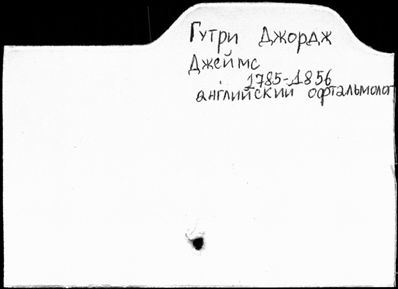 Гутри Джордж
Джеймс
1785-1856
английский офтальмолог